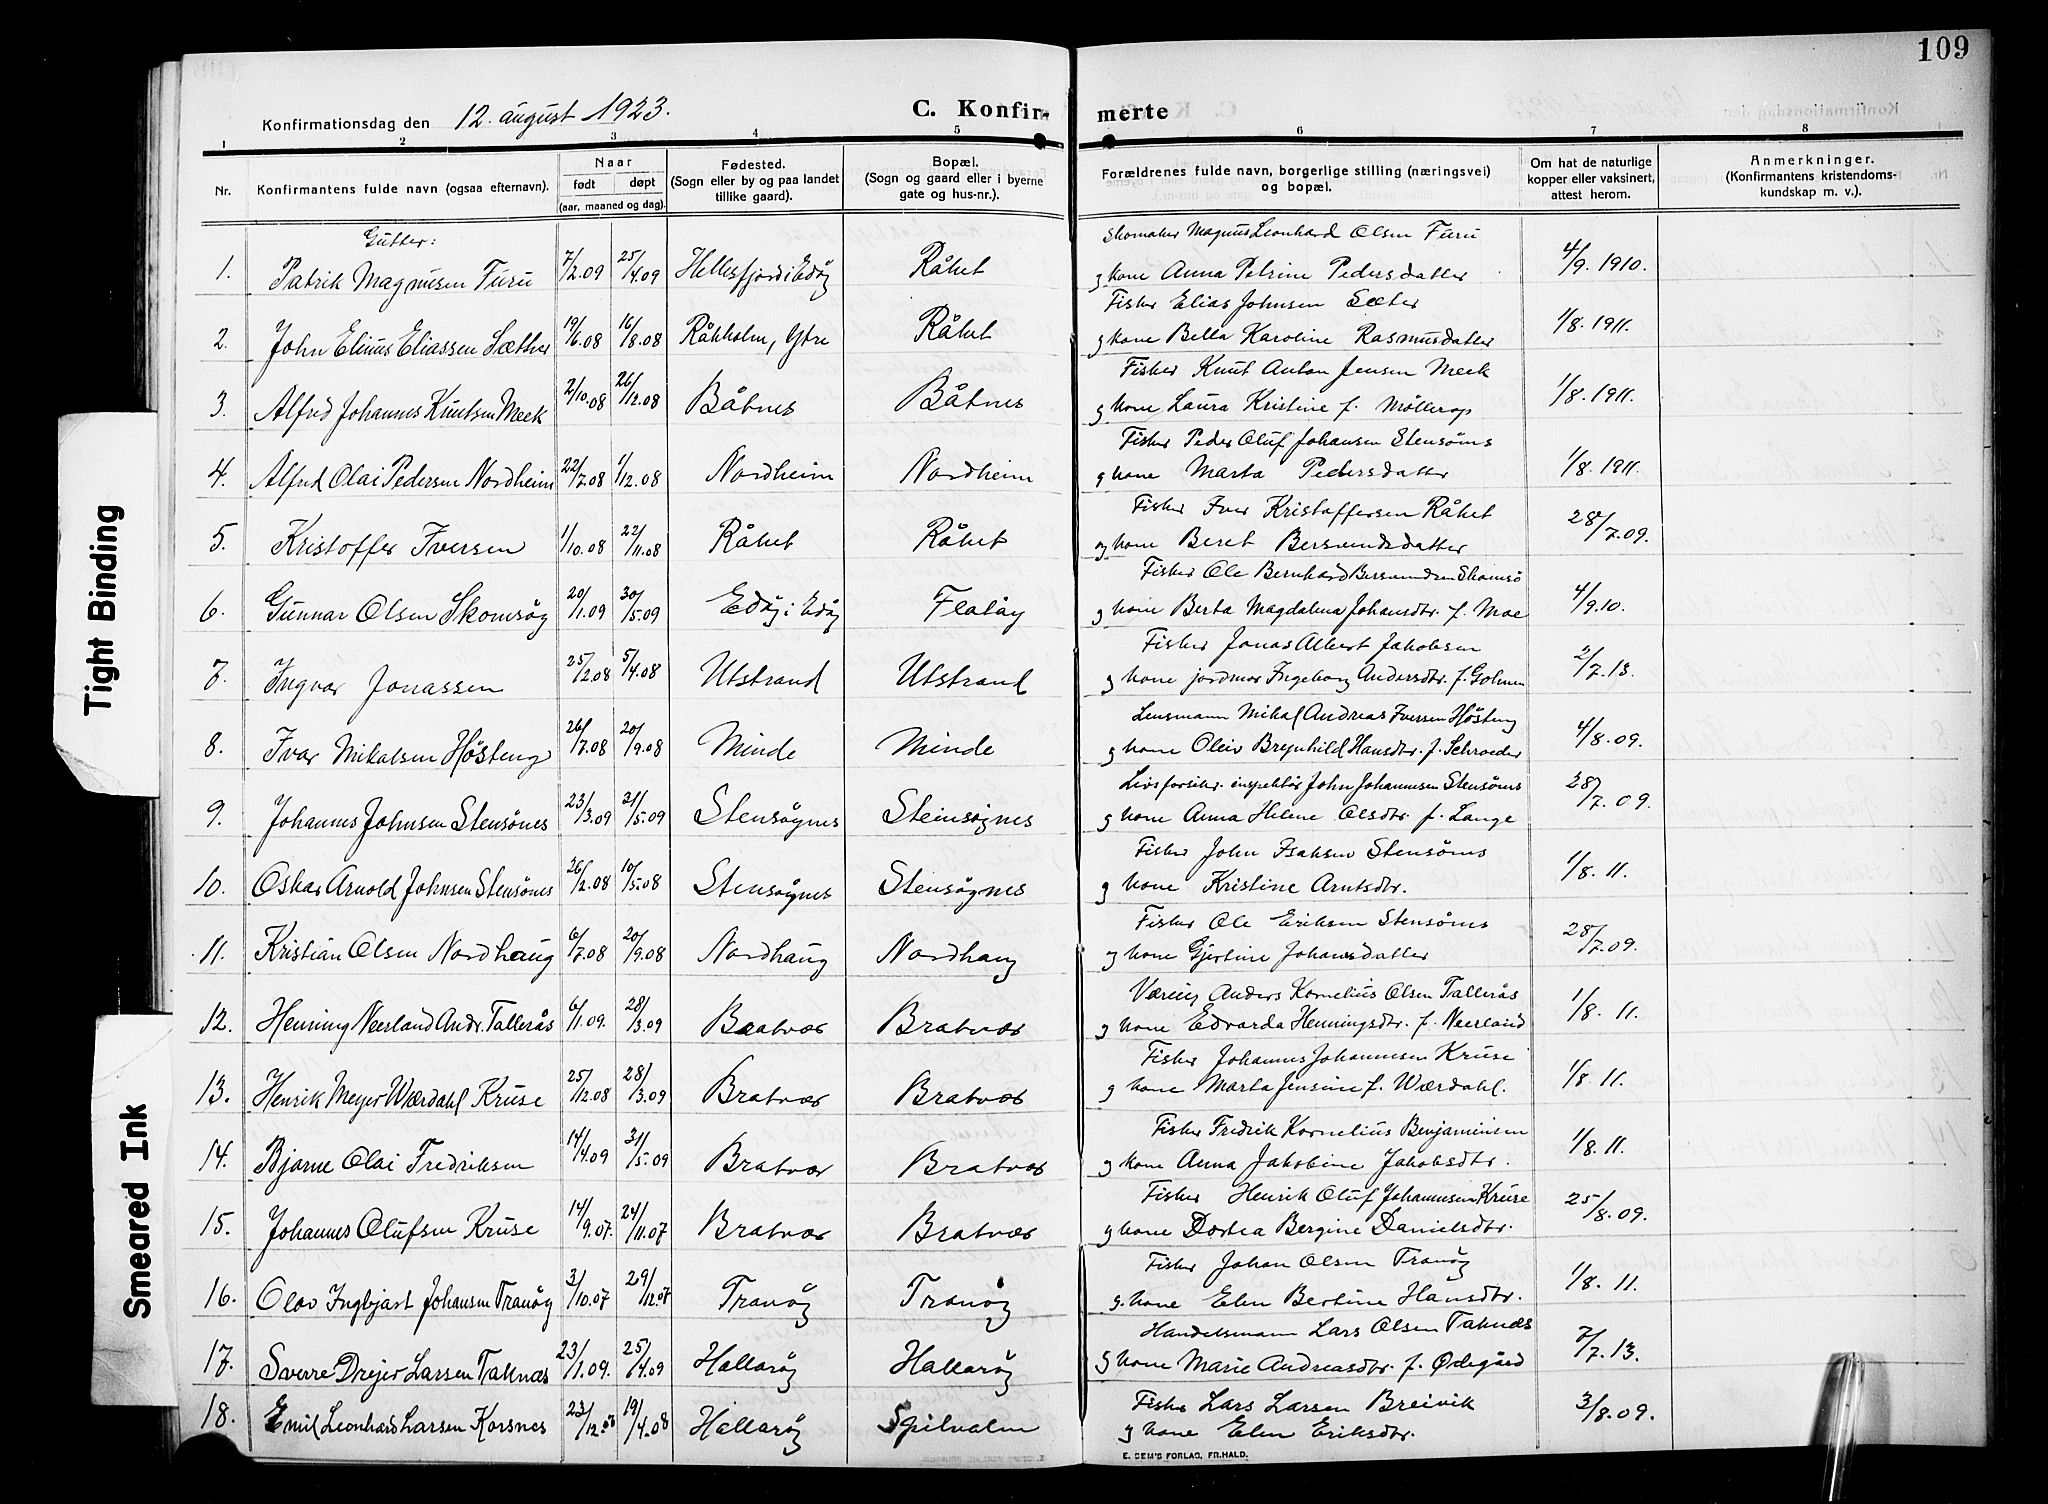 109
Konfirmationsdag den 12. august 1923.
C. Konfir- merte
1 2 3 4 5 6 7 8
Nr. Konfirmantens fulde navn (ogsaa efternavn). Naar født døpt (aar, maaned og dag). Fødested. (Sogn eller by og paa landet tillike gaard). Bopæl. (Sogn og gaard eller i byerne gate og hus-nr.). Forældrenes fulde navn, borgerlige stilling (næringsvei) og bopæl. Om hat de naturlige kopper eller vaksinert, attest herom. Anmerkninger. (Konfirmantens kristendoms- kundskap m. v.).
Gutter: Skomaker Magnus Leonhard Olsen Furu
1. Patrik Magnusen Furu 7/2.09 25/4.09 Hellesfjord i Edøy Råket og kone Anna Petrine Pedersdatter 4/9.1910.
Fisker Elias Johnsen Sæter
2. John Elius Eliassen Sæther 19/6.08 16/8.08 Råkholm, Ytre Råket og kone Bella Karoline Rasmusdatter 1/8.1911.
Fisker Knut Anton Jensen Meek
3. Alfred Johannes Knutsen Meek 2/10.08 26/12.08 Båtnes Båtnes og kone Laura Kristine f. Møllerop 1/8.1911.
Fisker Peder Oluf Johansen Stensønes
4. Alfred Olai Pedersen Nordheim 22/7.08 1/12.08 Nordheim Nordheim og kone Marta Pedersdatter 1/8.1911.
Fisker Iver Kristoffersen Råket
5. Kristoffer Iversen 1/10.08 22/11.08 Råket Råket og kone Beret Bersvendsdatter 28/7.09.
Fisker Ole Bernhard Bersvendsen Skomsø
6. Gunnar Olsen Skomsøy 20/1.09 30/5.09 Edøy i Edøy Flatøy og kone Berta Magdalena Johansdtr. f. Moe 4/9.10.
Fisker Jonas Albert Jakobsen
7. Ingvar Jonassen 25/2.08 5/4.08 Utstrand Utstrand og kone jordmor Ingeborg Andersdtr. f. Golmen 2/7.13.
Lensmann Mikal Andreas Iversen Høsteng
8. Ivar Mikalsen Høsteng 26/7.08 20/9.08 Minde Minde og kone Oleiv Brynhild Hansdtr. f. Schroeder 4/8.09.
Livsforsikr. inspektør John Johannesen Stensønes
9. Johannes Johnsen Stensønes 23/3.09 31/5.09 Stensøynes Steinsøynes og kone Anna Helene Olsdtr. f. Lange 28/7.09.
Fisker John Isaksen Stensønes
10. Oskar Arnold Johnsen Stensønes 26/2.08 10/5.08 Stensøynes Stensøynes og kone Kristine Arntsdtr. 1/8.11.
Fisker Ole Eriksen Stensønes
11. Kristian Olsen Nordhaug 6/7.08 20/9.08 Nordhaug Nordhaug og kone Gjertine Johansdatter 28/7.09.
Væreier Anders Kornelius Olsen Tallerås
12. Henning Neerland Andr. Tallerås 6/1.09. 28/3.09 Bratvær Bratvær og kone Edvarda Henningsdtr. f. Neerland 1/8.11.
Fisker Johannes Johannesen Kruse
13. Henrik Meyer Wærdahl Kruse 25/12.08 28/3.09 Bratvær Bratvær og kone Marta Jensine f. Wærdahl. 1/8.11.
Fisker Fredrik Kornelius Benjaminsen
14. Bjarne Olai Fredriksen 14/4.09 31/5.09 Bratvær Bratvær og kone Anna Jakobine Jakobsdtr. 1/8.11.
Fisker Henrik Oluf Johannesen Kruse
15. Johannes Olufsen Kruse 14/9.07. 24/11.07 Bratvær Bratvær og kone Dortea Bergine Danielsdtr. 25/8.09.
Fisker Johan Olsen Tranøy
16. Olav Ingbjart Johansen Tranøy 3/10.07 29/12.07 Tranøy Tranøy og kone Elen Bertine Hansdtr. 1/8.11.
Handelsmann Lars Olsen Taknæs
17. Sverre Drejer Larsen Taknæs 23/1.09. 25/4.09 Hallarøy Hallarøy og kone Marie Andreasdtr. f. Ødegård 7/7.13.
Fisker Lars Larsen Breivik
18. Emil Leonhard Larsen Korsnes 23/12. 19/4.08 Hallarøy og kone Elen Eriksdtr. 3/8.09.
E. SEM'S FORLAG, FR.HALD.
Tight Binding
Smeared Ink